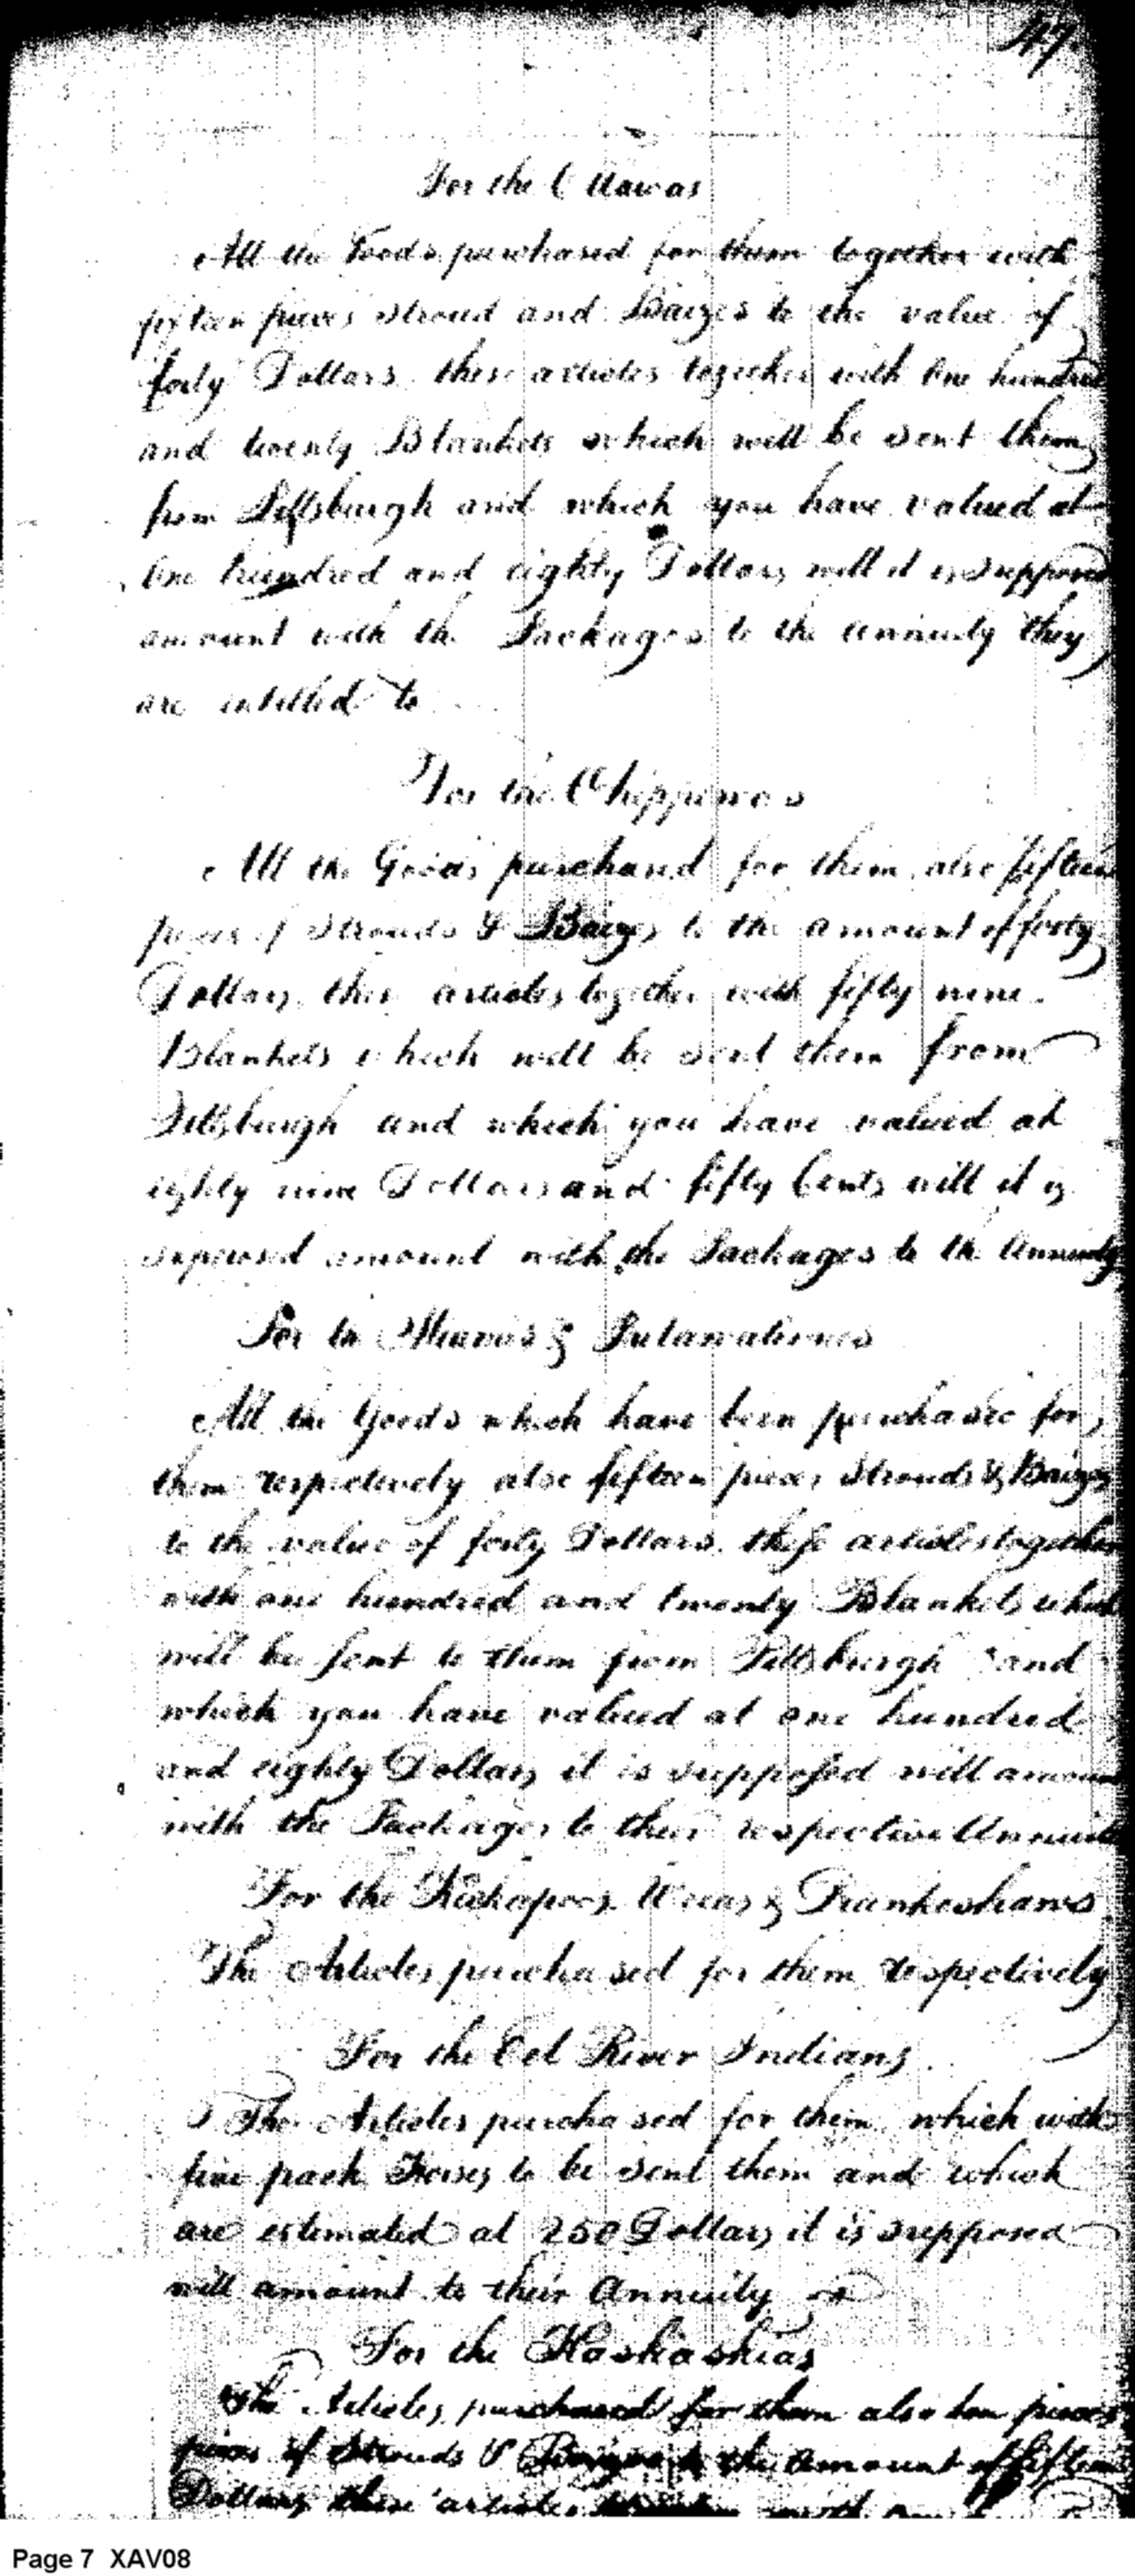 47
For the Ottawas
All the Goods purchased for them together with
fifteen pieces Stroud and Baizes to the value of
forty Dollars these articles together with One hundred
and twenty Blankets which will be sent them
from Pittsburgh and which you have valued at
One hundred and eighty Dollars will it is supposed
amount with the Packages to the annuity they
are intitled to
For the Chippewas
All the Goods purchased for them also fifteen
pieces of Strouds & Baizes to the amount of forty
Dollars, these articles together with fifty nine
Blankets which will be sent them from
Pittsburgh and which you have valued at
eighty nine Dollars and fifty Cents will it is
supposed amount with the Packages to the Annuity
For the Miamis & Putawatimies
All the Goods which have been purchased for
them respectively also fifteen pieces Strouds & Baizes
to the value of forty Dollars. these articles together
with one hundred and twenty Blankets which
will be sent to them from Pittsburgh and
which you have valued at one hundred
and eighty Dollars it is supposed will amount
with the Packages to their respective Annuities
For the Kickapoos, Weeas & Piankeshaws
The Articles purchased for them respectively
For the Eel River Indians
The Articles purchased for them which with
five pack Horses to be sent them and which
are estimated at 250 Dollars it is supposed
will amount to their Annuity
For the Kaskaskias
The Articles purchased for them also ten pieces
pieces of Strouds & Baizes to the Amount of fifteen
Dollars these articles with
Page 7 XAV08